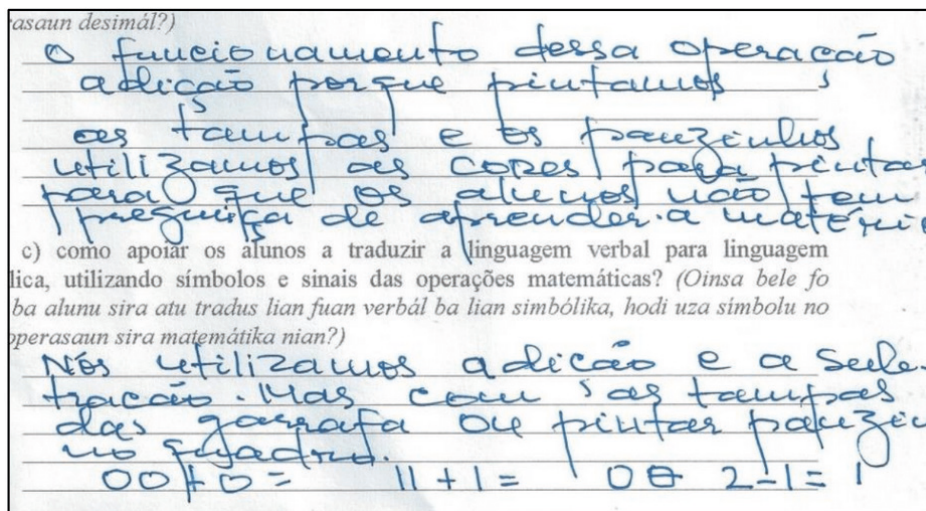 rasaun desimál?)
O funcionamento dessa operacão
adição porque pintamos
as tampas e os pauzinhos
utilizamos as cores para pintar
para que os alunos não tem
preguiça de aprender a matéri
c) como apoiar os alunos a traduzir a linguagem verbal para linguagem
lica, utilizando símbolos e sinais das operações matemáticas? (Oinsa bele fo
ba alunu sira atu tradus lian fuan verbál ba lian simbólika, hodi uza símbolu no
operasaun sira matemátika nian?)
Nós utilizamos adicão e a sub-
tracão. Mas com as tampas
das garrafa ou pintar pauzin
no quadro.
00+0= 11+1= 0θ 2-1=1